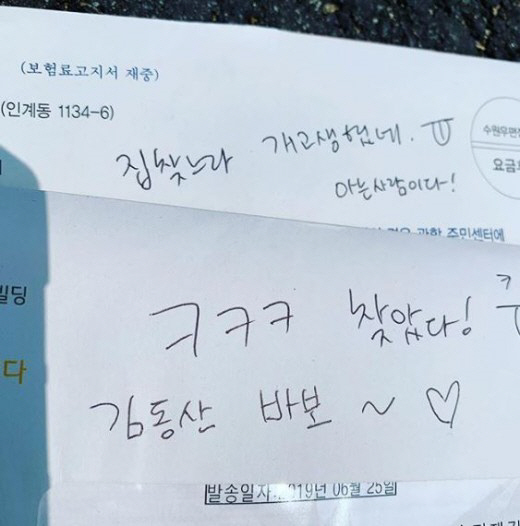 (보험료고지서 재중)
(인계동 1134-6)
집찾느라 개고생했네. ㅠ
아는사람이다!
요금
관할 주민센터에
빌딩
다
ㅋㅋㅋ 찾았다!
김동산 바보 ~ ♡
발송일자 2019년 06월 25일